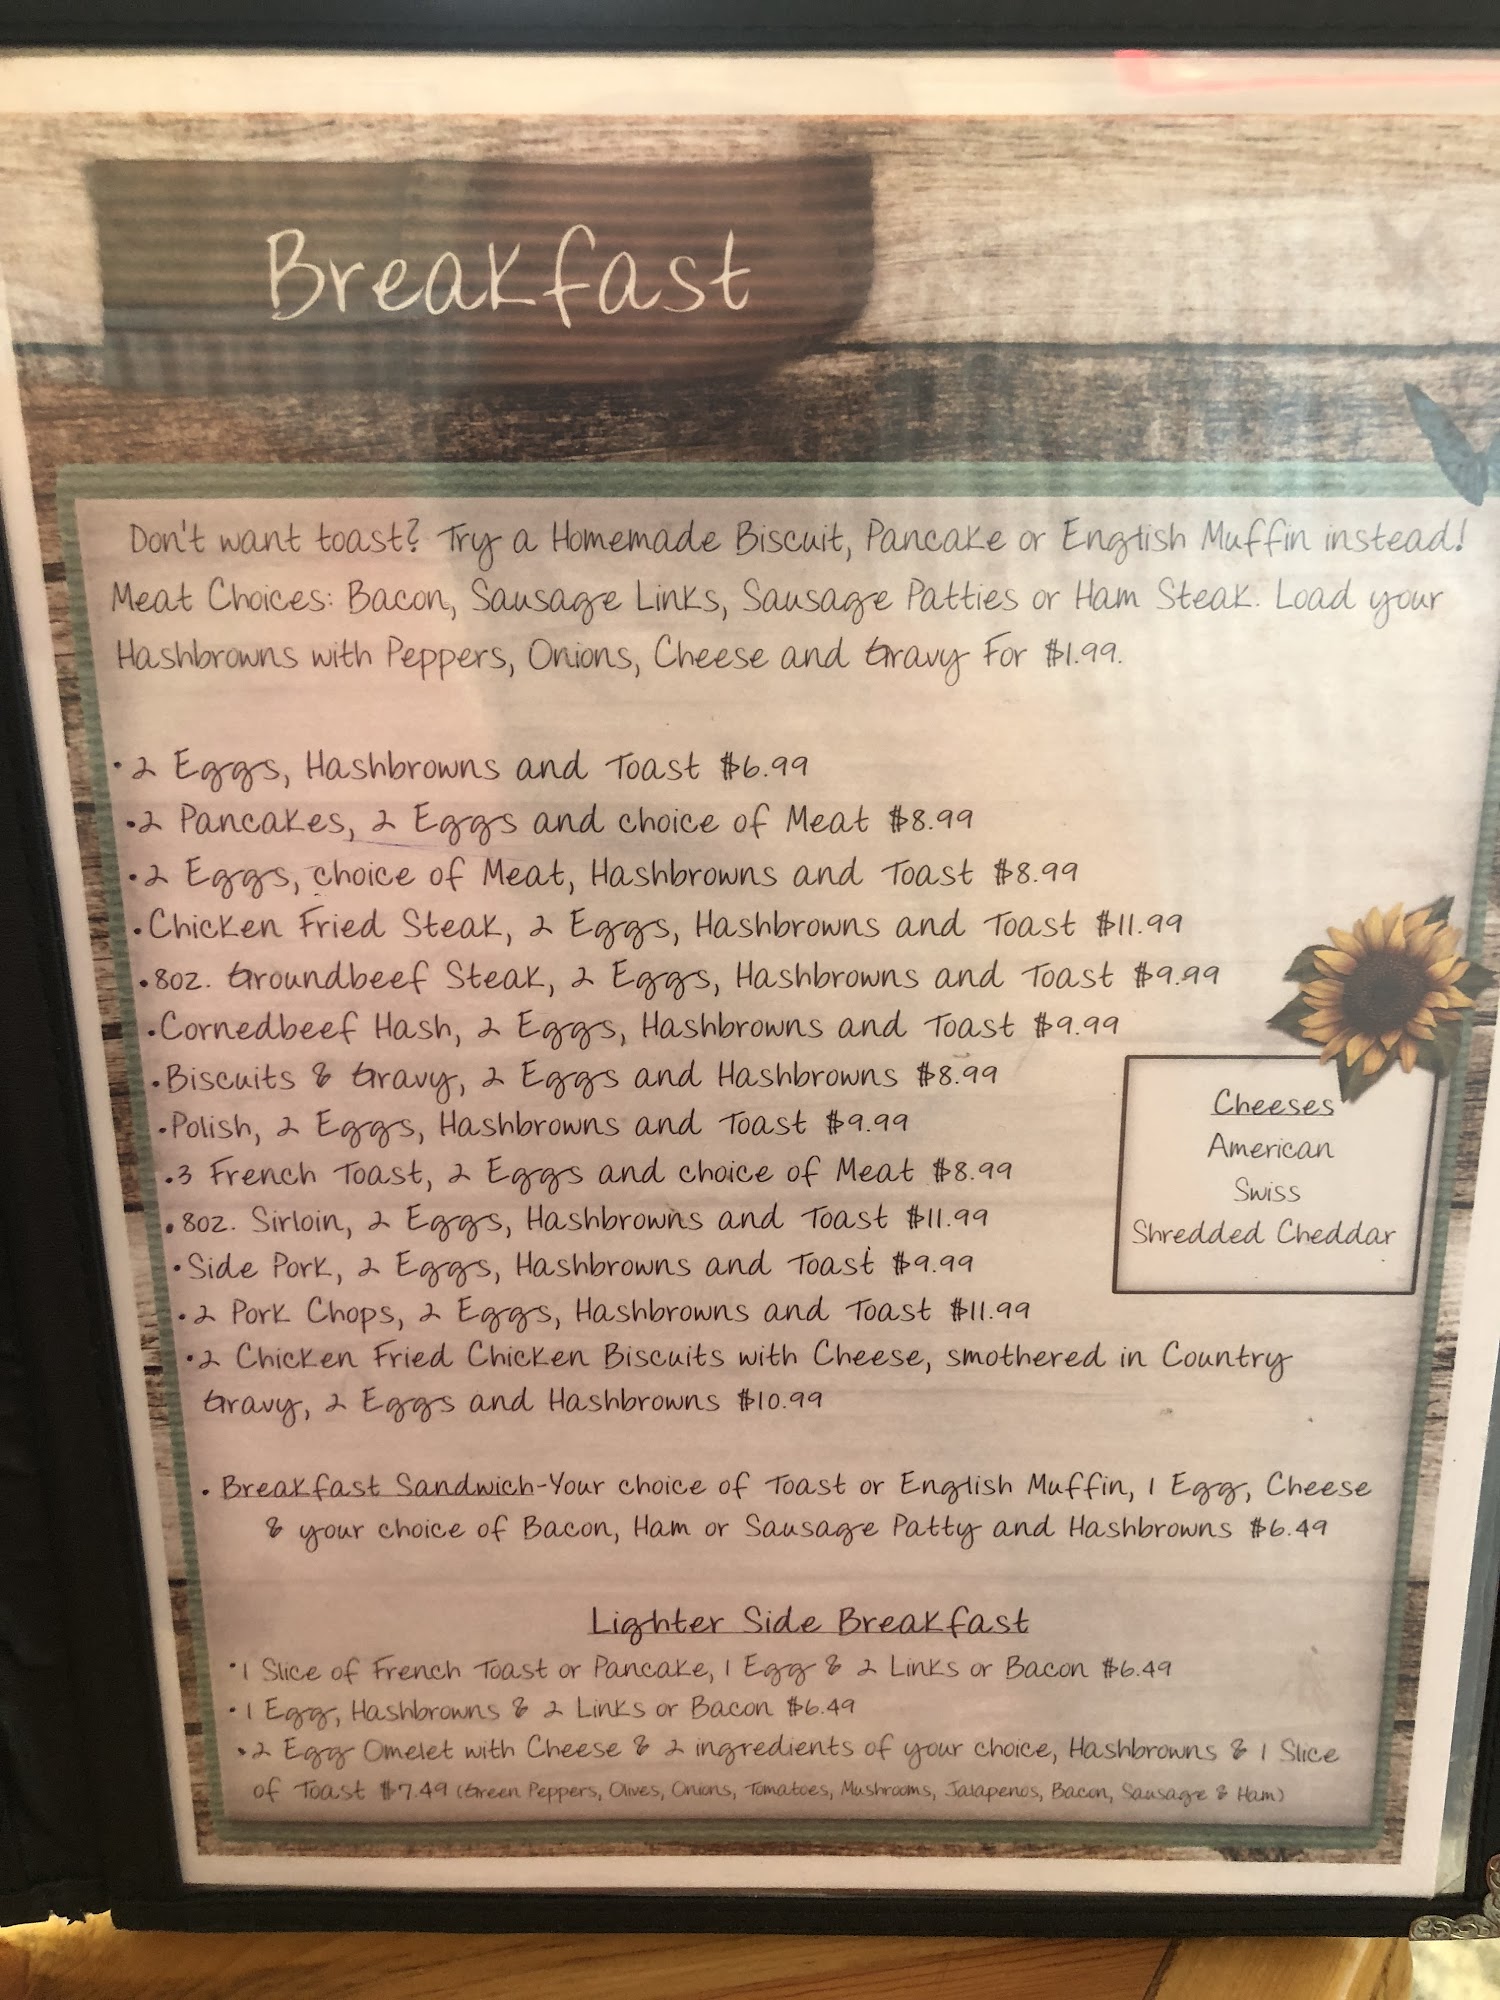 Breakfast
Don't want toast? Try a Homemade Biscuit, Pancake or English Muffin instead!
Meat Choices: Bacon, Sausage Links, Sausage Patties or Ham Steak. Load your
Hashbrowns with Peppers, Onions, Cheese and Gravy For $1.99.
• 2 Eggs, Hashbrowns and Toast $6.99
• 2 Pancakes, 2 Eggs and choice of Meat $8.99
• 2 Eggs, choice of Meat, Hashbrowns and Toast $8.99
• Chicken Fried Steak, 2 Eggs, Hashbrowns and Toast $11.99
• 8oz. Groundbeef Steak, 2 Eggs, Hashbrowns and Toast $9.99
• Cornedbeef Hash, 2 Eggs, Hashbrowns and Toast $9.99
• Biscuits & Gravy, 2 Eggs and Hashbrowns $8.99
• Polish, 2 Eggs, Hashbrowns and Toast $9.99
• 3 French Toast, 2 Eggs and choice of Meat $8.99
• 8oz. Sirloin, 2 Eggs, Hashbrowns and Toast $11.99
• Side Pork, 2 Eggs, Hashbrowns and Toast $9.99
• 2 Pork Chops, 2 Eggs, Hashbrowns and Toast $11.99
• 2 Chicken Fried Chicken Biscuits with Cheese, smothered in Country
Gravy, 2 Eggs and Hashbrowns $10.99
Cheeses
American
Swiss
Shredded Cheddar
• Breakfast Sandwich-Your choice of Toast or English Muffin, 1 Egg, Cheese
& your choice of Bacon, Ham or Sausage Patty and Hashbrowns $6.49
Lighter Side Breakfast
• 1 Slice of French Toast or Pancake, 1 Egg & 2 Links or Bacon $6.49
• 1 Egg, Hashbrowns & 2 Links or Bacon $6.49
• 2 Egg Omelet with Cheese & 2 ingredients of your choice, Hashbrowns & 1 Slice
of Toast $7.49 (Green Peppers, Olives, Onions, Tomatoes, Mushrooms, Jalapenos, Bacon, Sausage & Ham)